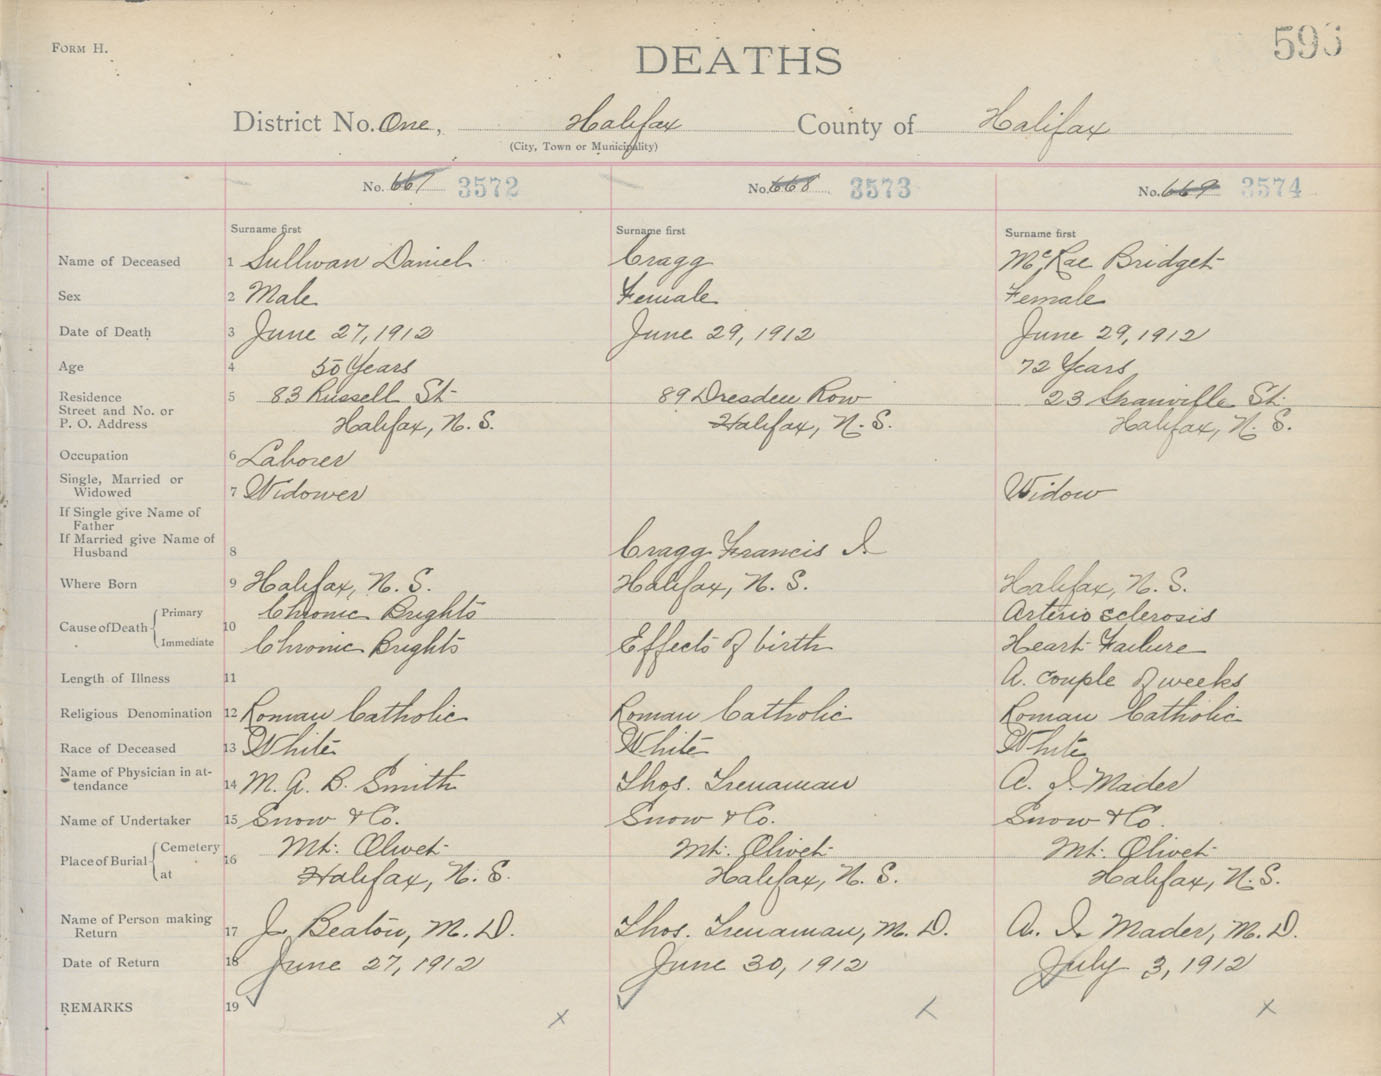 FORM H.
DEATHS
District No. One, Halifax County of Halifax
(City, Town or Municipality)
No. 667 3572 No. 668 3573 No. 669 3574
Surname first Surname first Surname first
Name of Deceased 1 Sullivan Daniel Cragg McRae Bridget
Sex 2 Male Female Female
Date of Death 3 June 27, 1912 June 29, 1912 June 29, 1912
Age 4 50 Years 72 Years
Residence 5 83 Russell St 89 Dresden Row 23 Granville St.
Street and No. or
P. O. Address Halifax, N. S. Halifax, N. S. Halifax, N. S.
Occupation 6 Laborer
Single, Married or
Widowed 7 Widower Widow
If Single give Name of
Father
If Married give Name of
Husband 8 Cragg Francis J.
Where Born 9 Halifax, N. S. Halifax, N. S. Halifax, N. S.
Cause of Death Primary 10 Chronic Brights Arterio sclerosis
Immediate Chronic Brights Effects of birth Heart Failure
Length of Illness 11 A. couple of weeks
Religious Denomination 12 Roman Catholic Roman Catholic Roman Catholic
Race of Deceased 13 White White White
Name of Physician in at-
tendance 14 M. A. B. Smith Thos. Trenaman A. I. Mader
Name of Undertaker 15 Snow & Co. Snow & Co. Snow & Co.
Place of Burial Cemetery 16 Mt. Olivet Mt. Olivet Mt. Olivet
at Halifax, N. S. Halifax, N. S. Halifax, N. S.
Name of Person making
Return 17 J. Beaton, M. D. Thos. Trenaman, M. D. A. I. Mader, M. D.
Date of Return 18 June 27, 1912 June 30, 1912 July 3, 1912
REMARKS 19 x x x